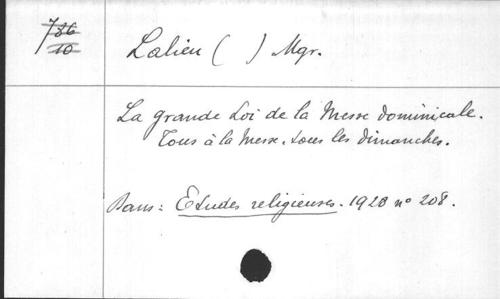 786
10
Lalieu ( ) Mgr.
La grande Loi de la Messe dominicale.
Tous à la Messe, tous les dimanches.
Dans: Etudes religieuses. 1928 n° 208.